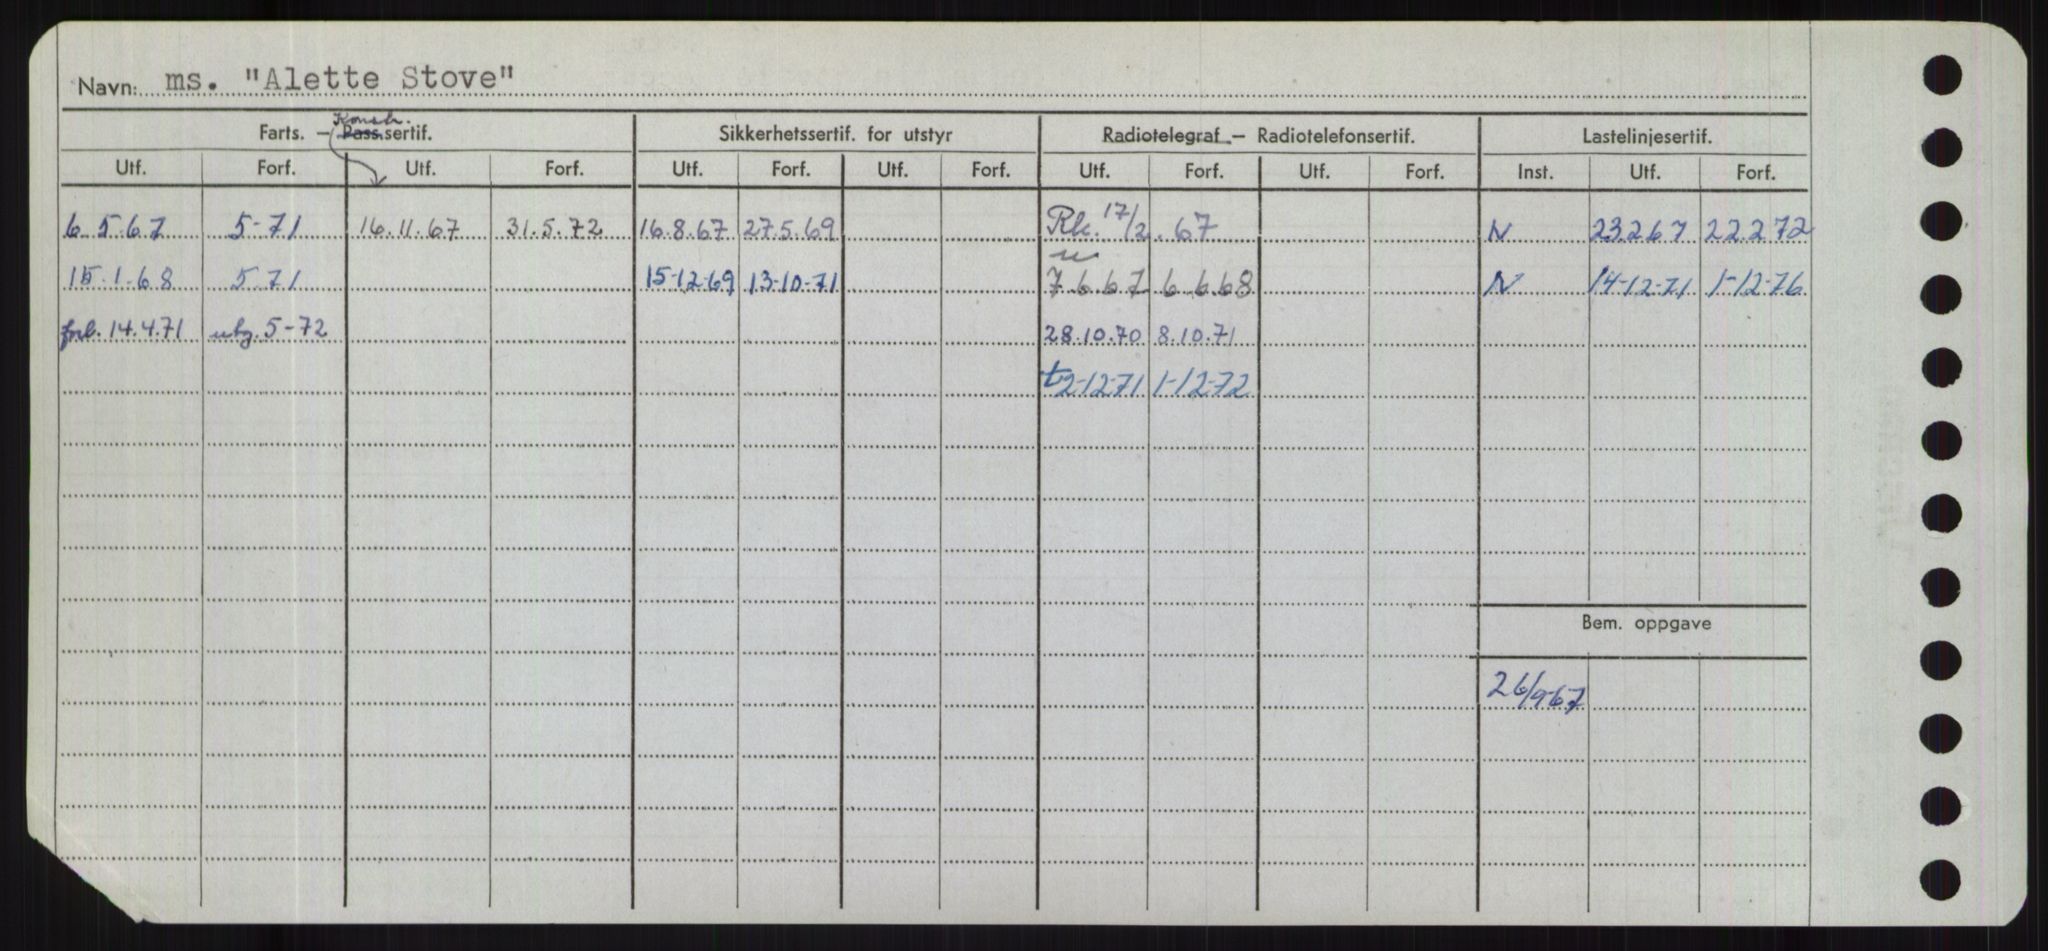 Navn: ms. "Alette Stove"
Konstr.
Farts. — Pass.sertif. Sikkerhetssertif. for utstyr Radiotelegraf — Radiotelefonsertif. Lastelinjesertif.
Utf. Forf. Utf. Forf. Utf. Forf. Utf. Forf. Utf. Forf. Utf. Forf. Inst. Utf. Forf.
6.5.67 5-71 16.11.67 31.5.72 16.8.67 27.5.69 Rk. 17/2.67 N 23.2.67 22.2.72
15.1.68 5.71 15-12-69 13-10-71 7.6.67 6.6.68 N 14-12-71 1-12-76
forl. 14.4.71 utg. 5-72 28.10.70 8.10.71
t2-12-71 1-12-72
Bem. oppgave
26/9-67